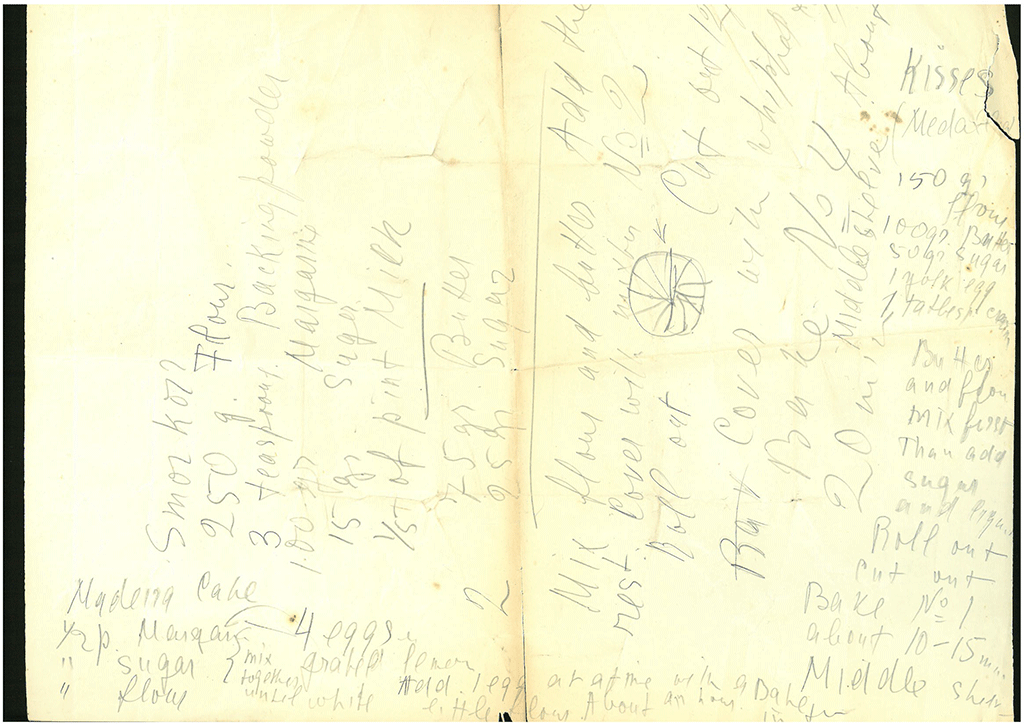 Smorkor
250 g. Flour
3 teaspouns Backing powder
100 gr Margarine
15 gr Sugar
1/5t of pint Milk
2
75 gr. Butter
25 gr Sugar
Mix flour and butter Add the
rest. Cover with
No 2
Roll out Cut out
But Cover with
Bake No 4
20 min Middle shelve About
Kisses
150 gr
flour
100gr. Butter
50 gr sugar
1 yolk egg
1
Butter
and flour
mix first
Than add
sugar
and
Roll out
cut out
Bake No 1
about 10-15 min
Middle
Maderra Cake
1/2 p. Margar 4 eggs
" sugar mix together until white grated lemon
" flour Add 1 egg at a time with a
little flour. About an hour.